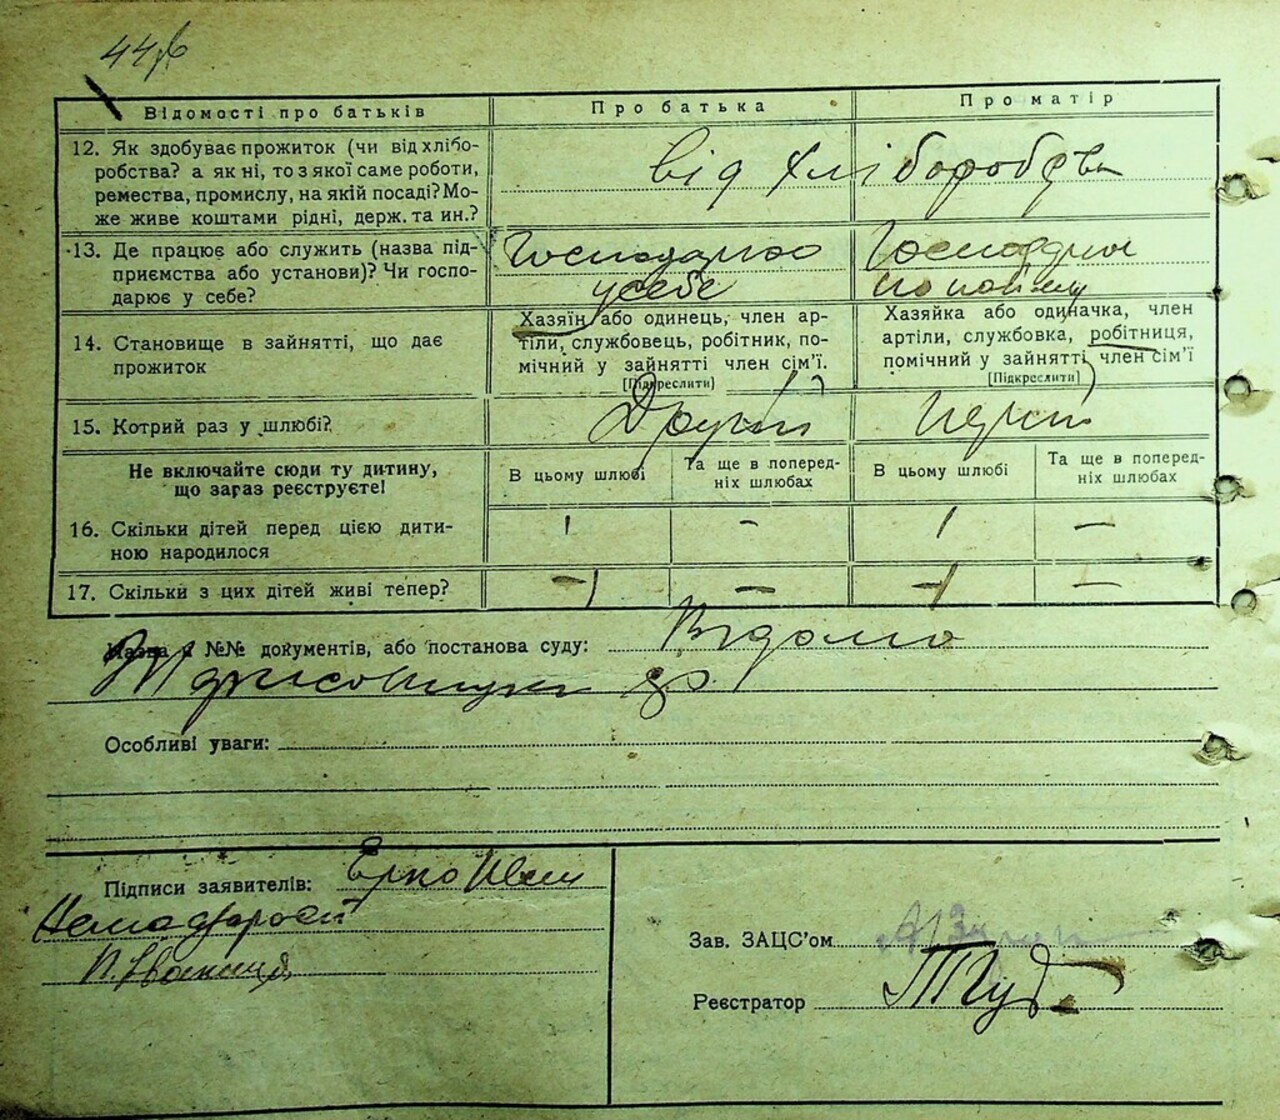 Відомості про батьків
Про батька
Про матір
12. Як здобуває прожиток (чи від хлібо-
робства? а як ні, то з якої саме роботи,
ремества, промислу, на якій посаді? Мо-
же живе коштами рідні, держ. та ин.?
від хліборобства
13. Де працює або служить (назва під-
приємства або установи)? Чи госпо-
дарює у себе?
Господарює
у себе
14. Становище в зайнятті, що дає
прожиток
Хазяїн або одинець, член ар-
тіли, службовець, робітник, по-
мічний у зайнятті член сім'ї.
[Підкреслити]
Хазяйка або одиначка, член
артіли, службовка, робітниця,
помічний у зайнятті член сім'ї
[Підкреслити]
15. Котрий раз у шлюбі?
Другий
Перший
Не включайте сюди ту дитину,
що зараз реєструєте!
В цьому шлюбі
Та ще в поперед-
ніх шлюбах
В цьому шлюбі
Та ще в поперед-
ніх шлюбах
16. Скільки дітей перед цією дити-
ною народилося
1 - 1 -
17. Скільки з цих дітей живі тепер?
1 - 1 -
Назва й №№ документів, або постанова суду:
Особливі уваги:
Підписи заявителів:
Зав. ЗАЦС'ом
Реєстратор